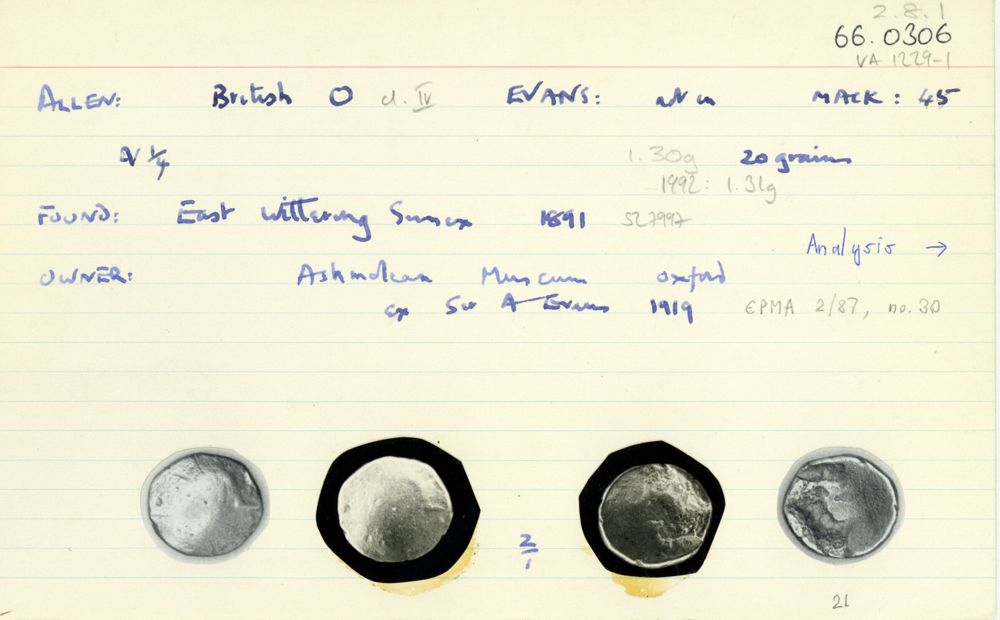 2.8.1
66.0306
VA 1229-1
ALLEN: British O cl. IV EVANS: MACK: 45
N 1/4 1.30g 20 grains
1992: 1.31g
FOUND: East Wittering Sussex 1891 SZ7997
Analysis →
OWNER: Ashmolean Museum Oxford
ex Sir A Evans 1919 EPMA 2/87, no. 30
2/1
21